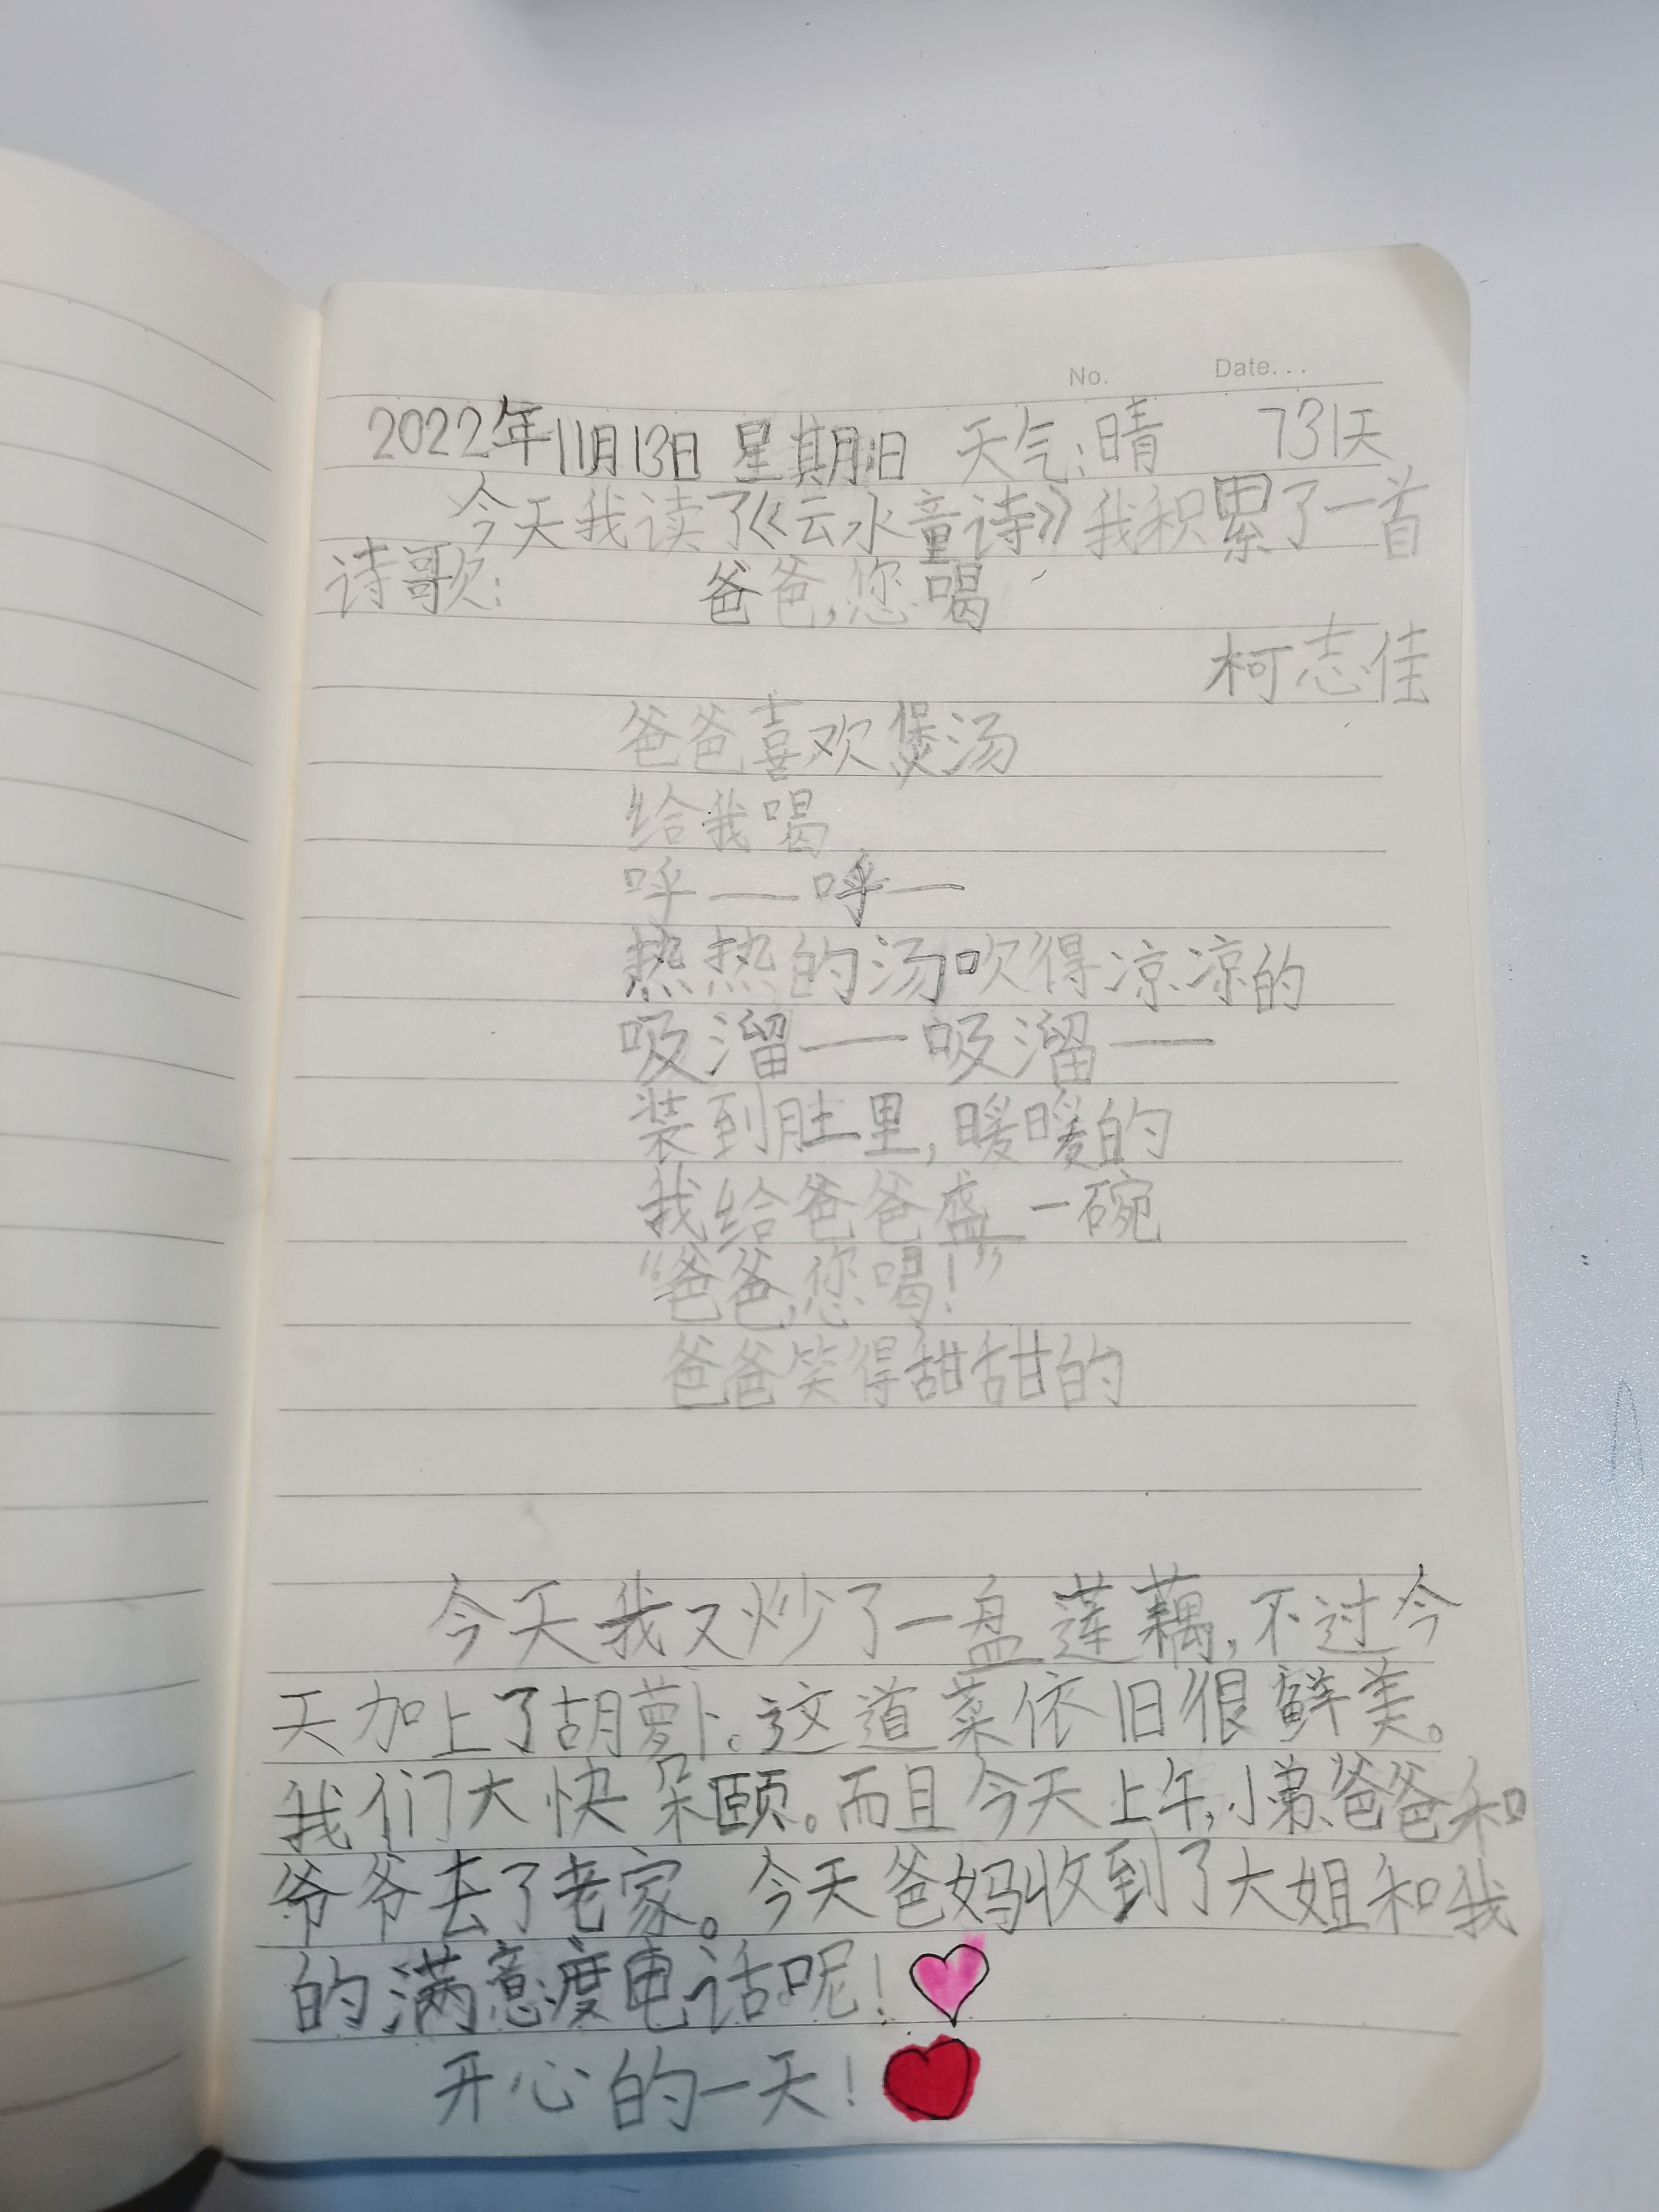 No. Date...
2022年11月13日 星期日 天气:晴 731天
今天我读了《云水童诗》我积累了一首
诗歌: 爸爸,您喝
柯志佳
爸爸喜欢煲汤
给我喝
呼——呼—
热热的汤吹得凉凉的
吸溜——吸溜——
装到肚里,暖暖的
我给爸爸盛一碗
“爸爸,您喝!”
爸爸笑得甜甜的
今天我又炒了一盘莲藕,不过今
天加上了胡萝卜。这道菜依旧很鲜美。
我们大快朵颐。而且今天上午,小弟、爸爸和
爷爷去了老家。今天爸妈收到了大姐和我
的满意度电话呢!
开心的一天!